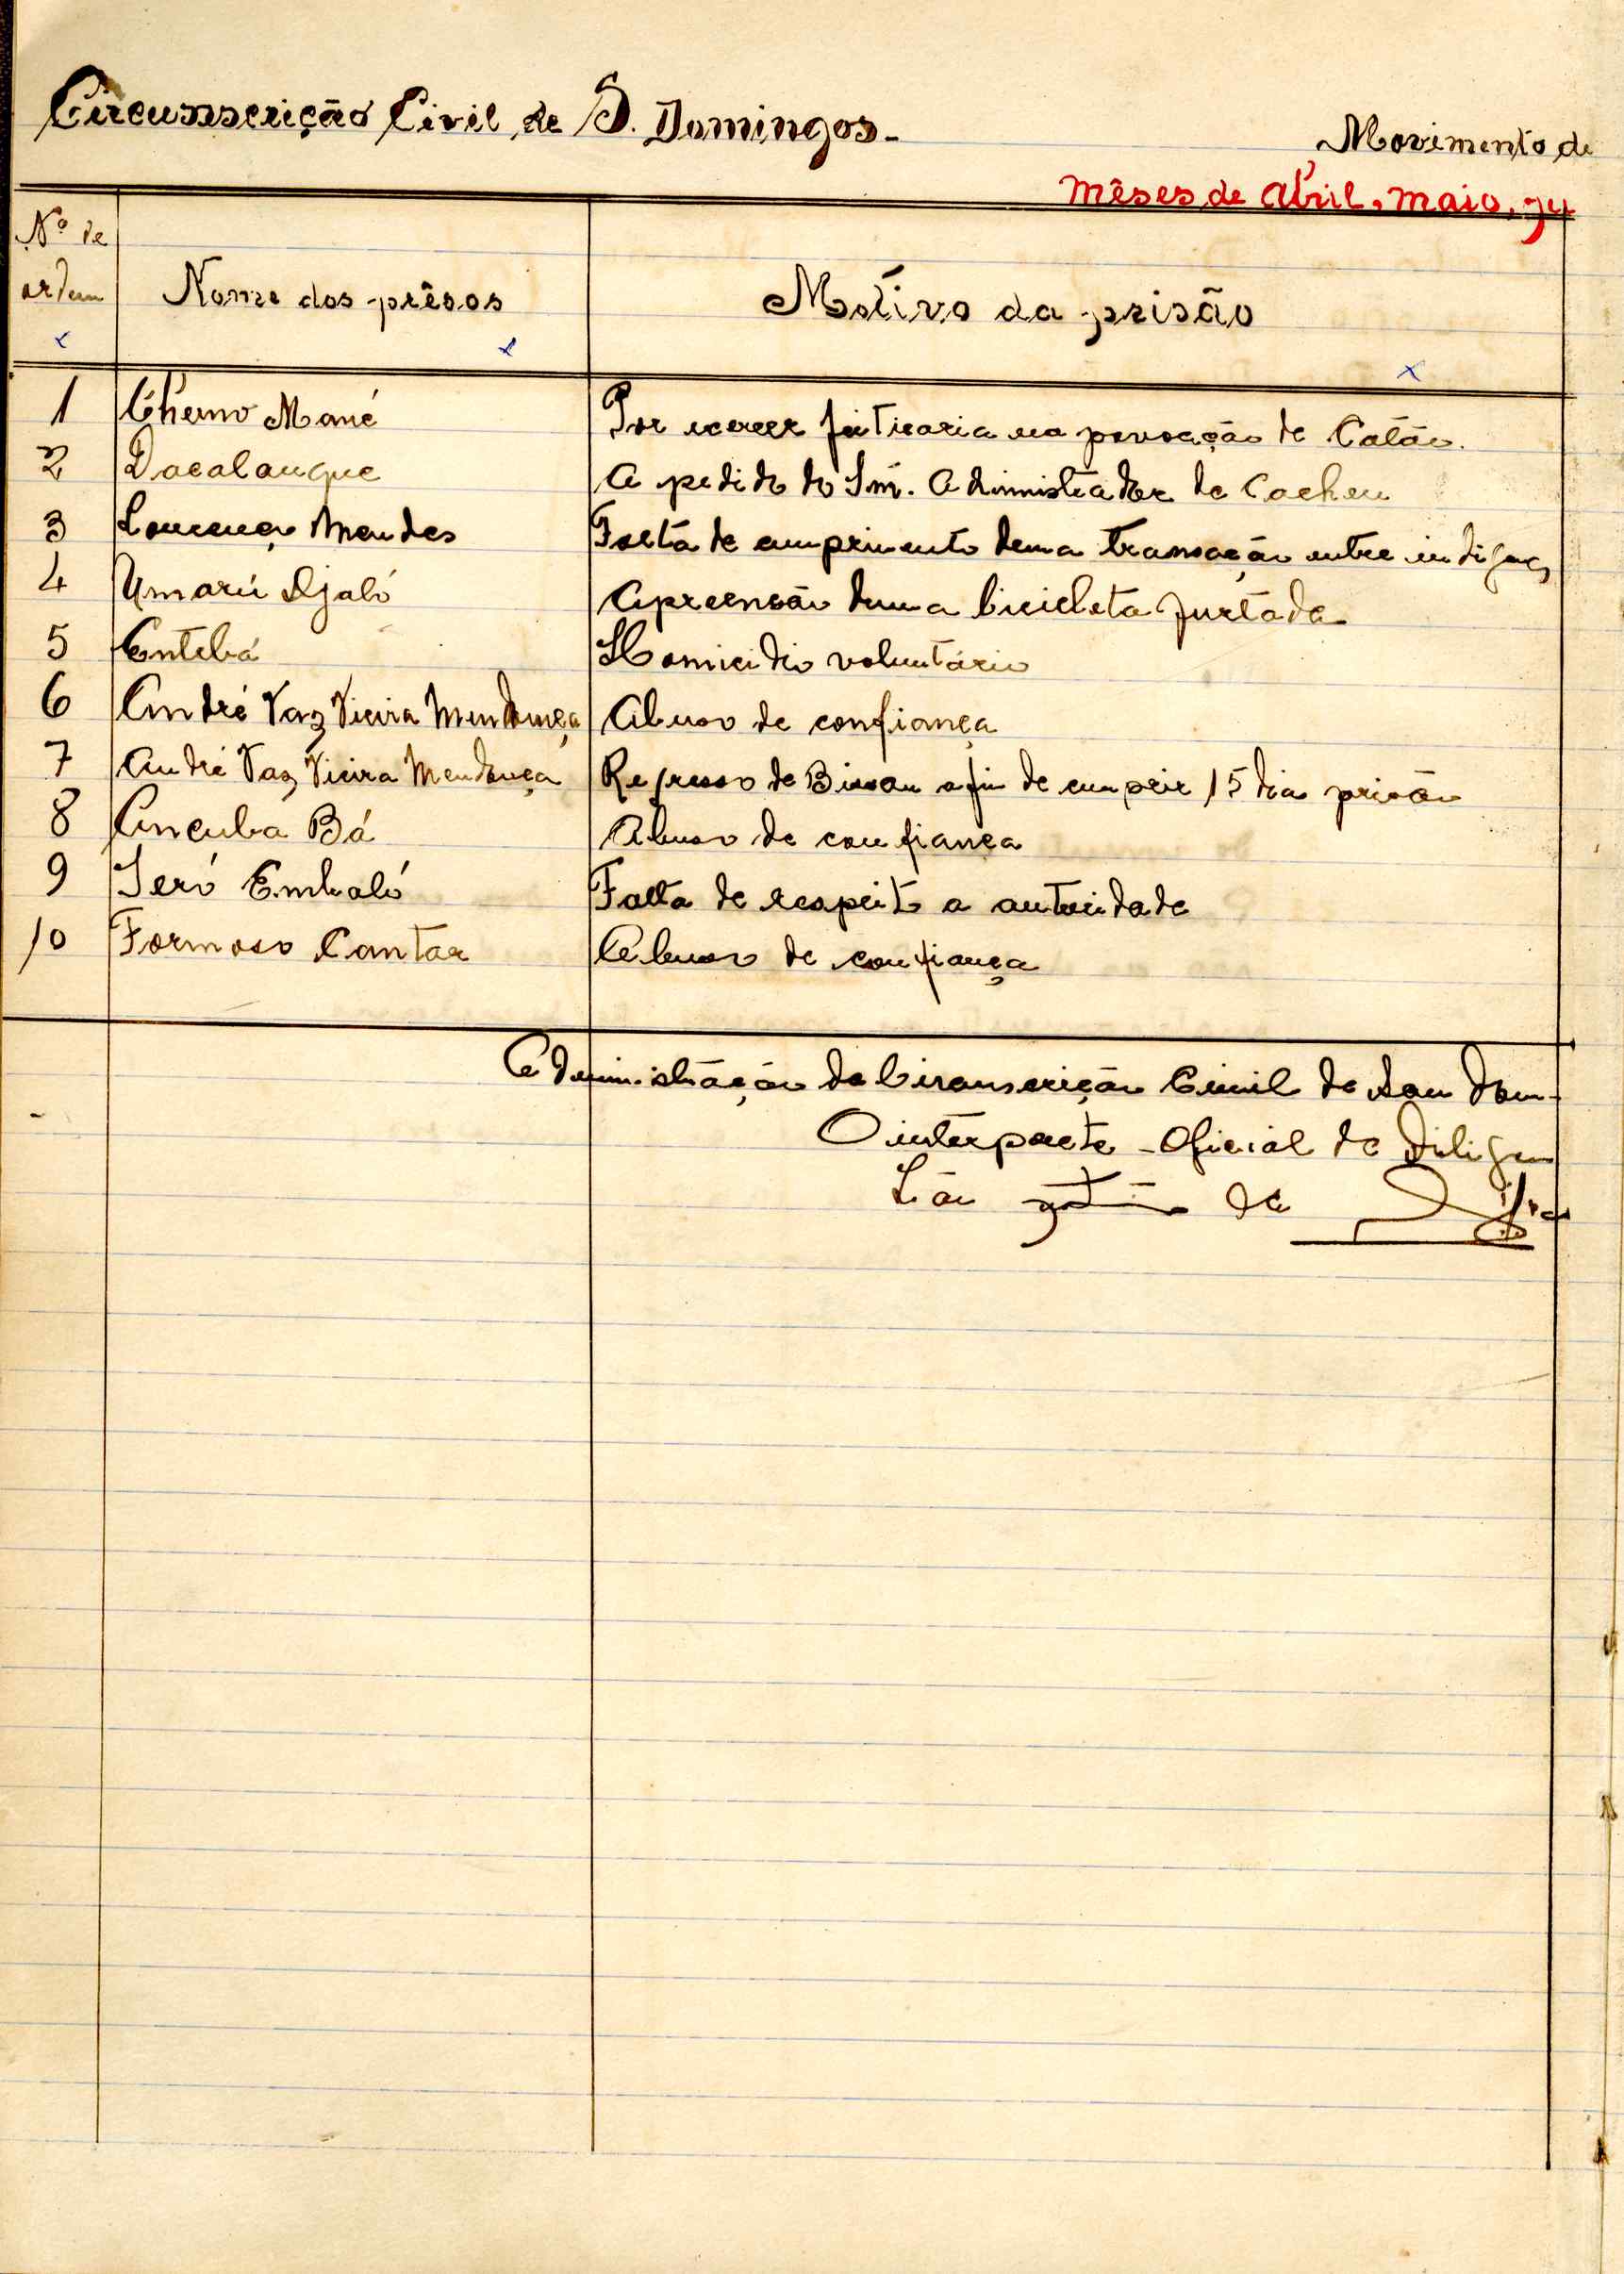 Circunscrição Civil de S. Domingos -
Movimento de
Mêses de Abril, Maio, Ju
Nº de ordem
Nome dos prêsos
Motivo da prisão
1 Cherno Mané Por exercer feiticaria na povoação de Catão.
2 Dacalanque A pedido do Snr. Administrador de Cacheu
3 Lourenço Mendes Falta de cumprimento duma transação entre indigenas
4 Umarú Djaló Apreensão duma bicicleta furtada
5 Entebá Homicidio voluntário
6 André Vaz Vieira Mendonça Abuso de confiança
7 André Vaz Vieira Mendonça Regresso de Bissau afim de cumprir 15 dias prisão
8 Ancuba Bá Abuso de confiança
9 Seró Embaló Falta de respeito a autoridade
10 Formoso Cantar Abuso de confiança
Administração da Circunscrição Civil de Sau Dom-
O interprete - Oficial de Diligen
de